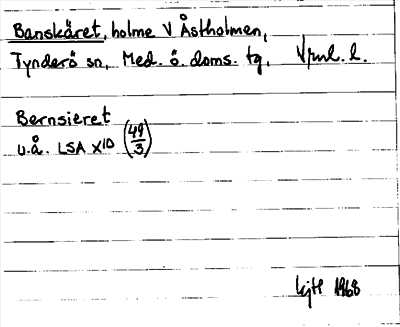 Banskäret, holme V Åstholmen,
Tynderö sn, Med. ö. doms. tg, Vnl. l.
Bernsieret
u.å. LSA X10 (49/3)
1968